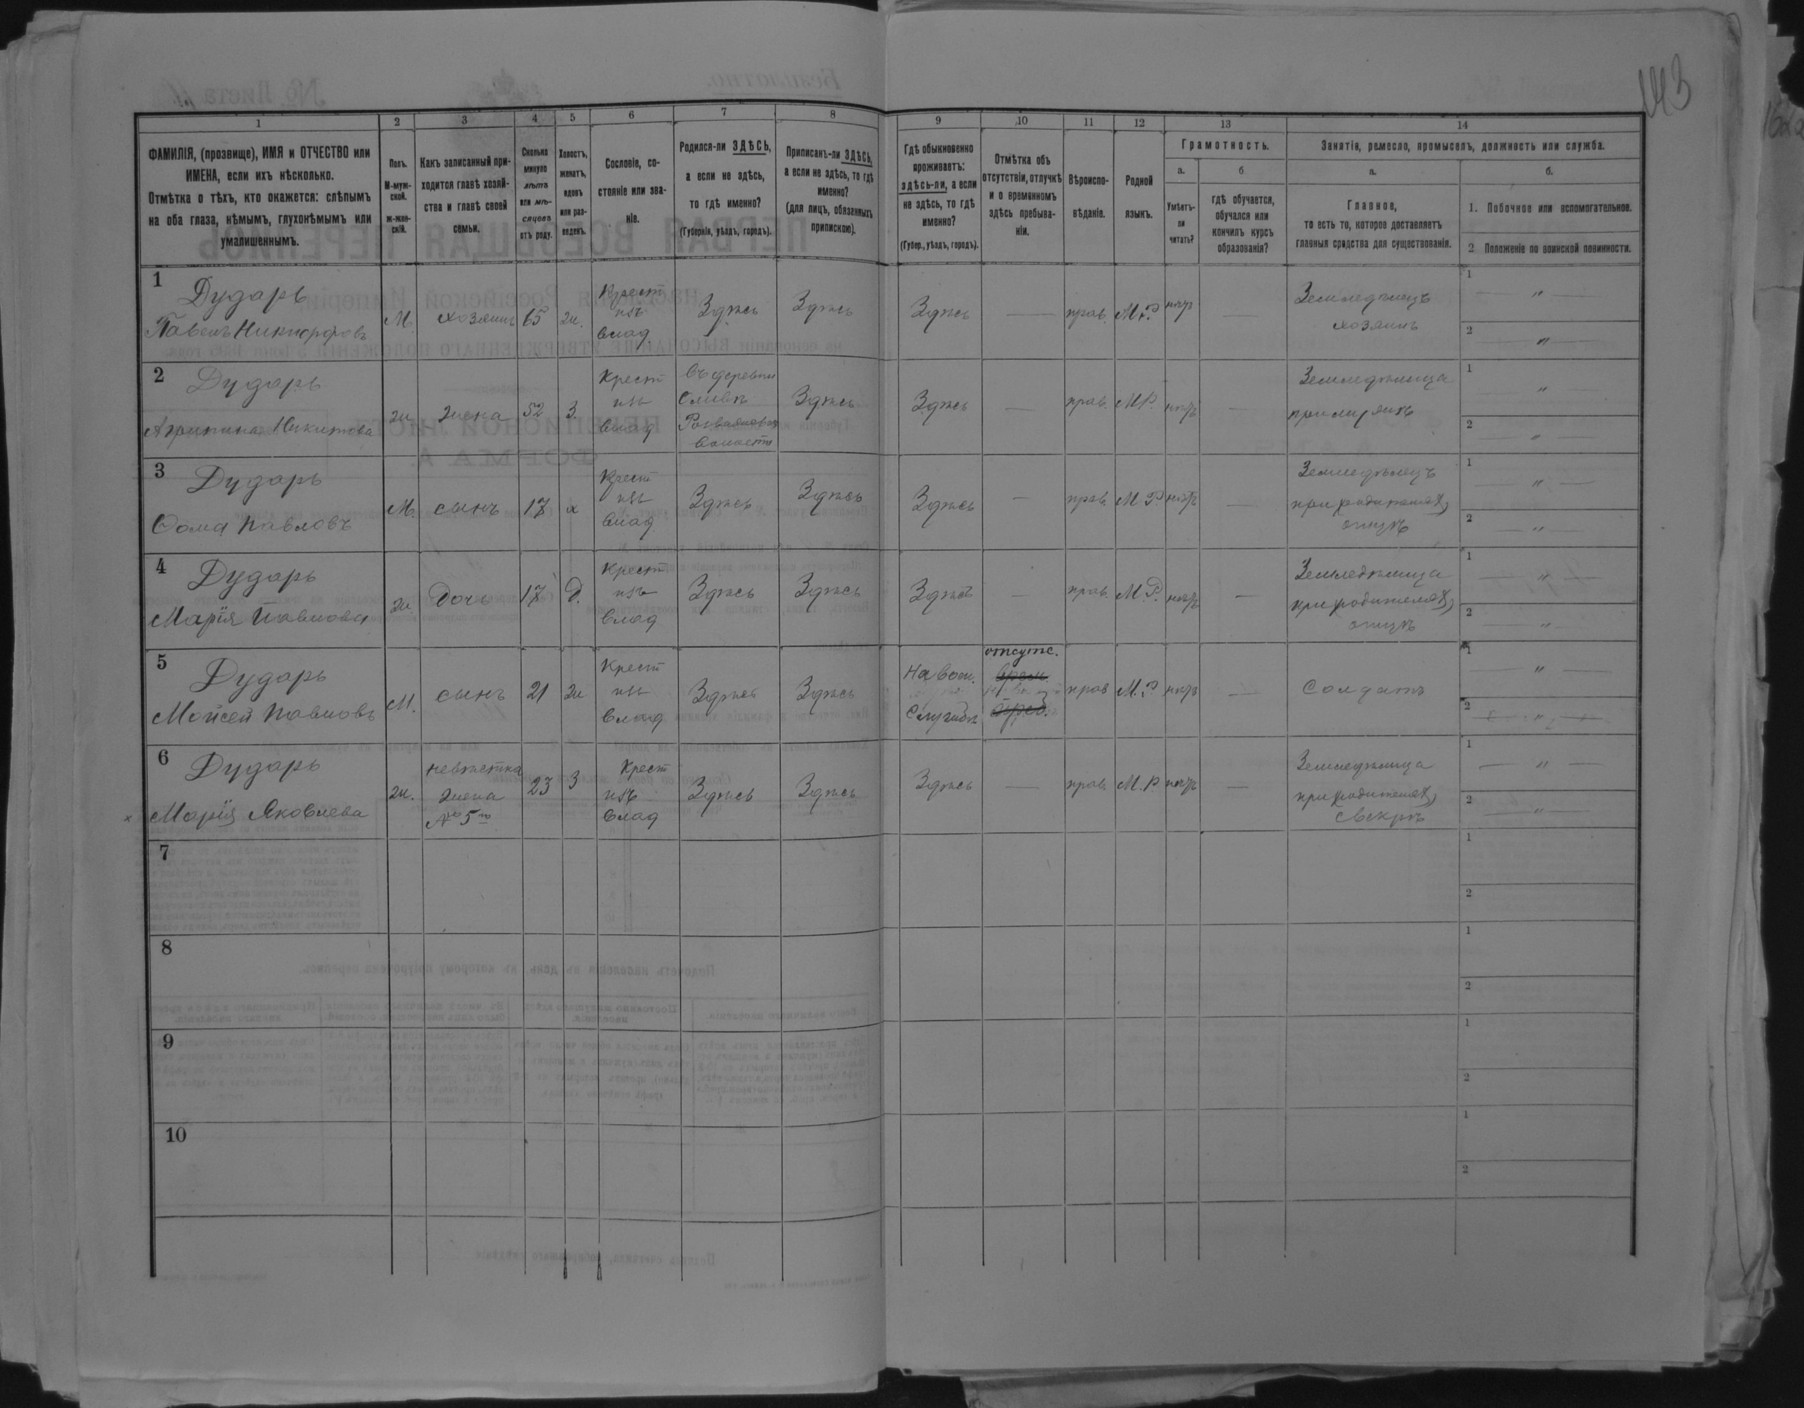 143
1
2
3
4
5
6
7
8
9
10
12
13
14
ФАМИЛІЯ, (прозвище), ИМЯ и ОТЧЕСТВО или
ИМЕНА, если ихъ нѣсколько.
Отмѣтка о тѣхъ, кто окажется: слѣпымъ
на оба глаза, нѣмымъ, глухонѣмымъ или
умалишеннымъ.
Полъ.
М-муж-
ской.
ж-жен-
скій.
Какъ записанный при-
ходится главѣ хозяй-
ства и главѣ своей
семьи.
Сколько
минуло
лѣтъ
или мѣ-
сяцевъ
отъ роду.
Холостъ,
женатъ,
вдовъ
или раз-
веденъ.
Сословіе, со-
стояніе или зва-
ніе.
Родился-ли ЗДѢСЬ,
а если не здѣсь,
то гдѣ именно?
(Губернія, уѣздъ, городъ).
Приписанъ-ли ЗДѢСЬ,
а если не здѣсь, то гдѣ
именно?
(для лицъ, обязанныхъ
припискою).
Гдѣ обыкновенно
проживаетъ:
здѣсь-ли, а если
не здѣсь, то гдѣ
именно?
(Губер., уѣздъ, городъ).
Отмѣтка объ
отсутствіи, отлучкѣ
и о временномъ
здѣсь пребыва-
ніи.
Вѣроиспо-
вѣданіе.
Родной
языкъ.
Грамотность.
а.
б
Умѣетъ-
ли
читать?
гдѣ обучается,
обучался или
кончилъ курсъ
образованія?
Занятія, ремесло, промыселъ, должность или служба.
а.
б.
Главное,
то есть то, которое доставляетъ
главныя средства для существованія.
1. Побочное или вспомогательное.
2 Положеніе по воинской повинности.
1
Дударь
Павелъ Никифоровъ
М
хозяинъ
65
ж.
Крест
изъ
влад
Здѣсь
Здѣсь
Здѣсь
—
прав.
М.Р
негр
—
Земледѣлецъ
хозяинъ
1 — " —
2 — " —
2
Дударь
Агрипина Никитова
ж
жена
52
З.
Крест
изъ
влад
въ деревни
Здѣсь
Здѣсь
—
прав.
М.Р.
негр
—
Земледѣлица
при мужѣ
1 — " —
2 — " —
3
Дударь
Ѳома Павловъ
М.
сынъ
Х
Крест
изъ
влад
Здѣсь
Здѣсь
Здѣсь
—
прав
М Р
негр
—
Земледѣлецъ
при родителяхъ,
отцѣ
1 — " —
2 — " —
4
Дударь
Марія Павлова
ж
дочь
Д.
Крест
изъ
влад
Здѣсь
Здѣсь
Здѣсь
—
прав
М.Р.
негр
—
Земледѣлица
при родителяхъ,
отцѣ
1 — " —
2 — " —
5
Дударь
Мойсей Павловъ
М.
сынъ
21
ж
Крест
изъ
влад
Здѣсь
Здѣсь
На воен.
службѣ
отсутс.
прав
М.Р
негр
—
Солдатъ
1 — " —
2 — " —
6
Дударь
Марія Яковлева
ж.
невѣстка
жена
№ 5го
23
З
Крест
изъ
влад
Здѣсь
Здѣсь
Здѣсь
—
прав.
М.Р
негр
—
Земледѣлица
при родителяхъ,
свекрѣ
1 — " —
2 — " —
7
1
2
8
1
2
9
1
2
10
1
2